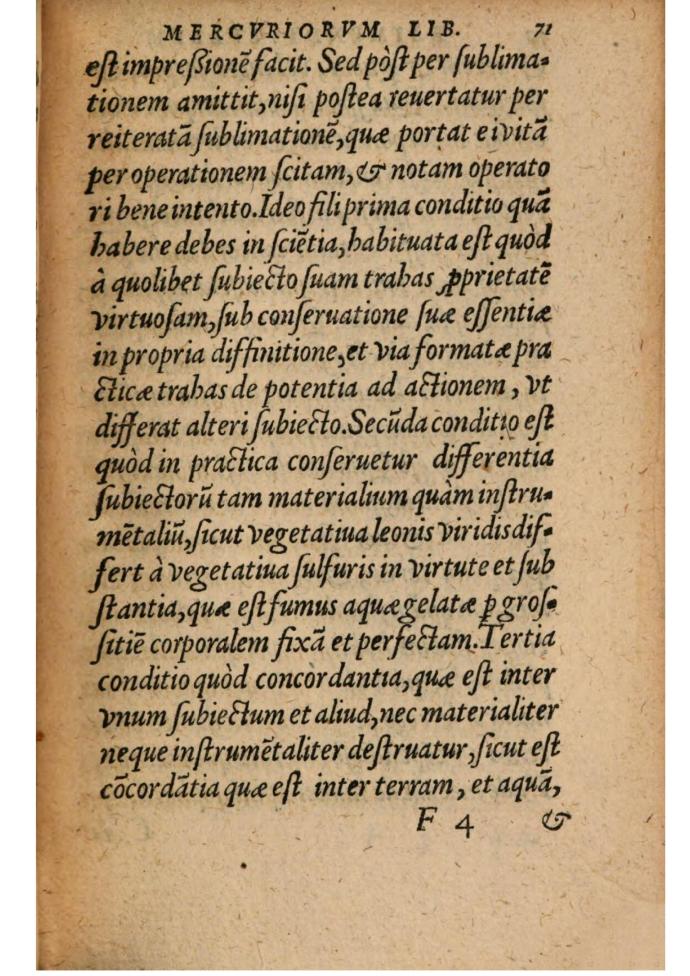 MERCVRIORVM LIB. 71
est impreßionẽ facit. Sed pòst per sublima-
tionem amittit, nisi postea reuertatur per
reiteratã sublimationẽ, quæ portat ei vitã
per operationem scitam, & notam operato
ri bene intento. Ideo fili prima conditio quã
habere debes in sciẽtia, habituata est quòd
à quolibet subiecto suam trahas ꝓprietatẽ
virtuosam, sub conseruatione suæ essentiæ
in propria diffinitione, et via formatæ pra
cticæ trahas de potentia ad actionem, vt
differat alteri subiecto. Secũda conditio est
quòd in practica conseruetur differentia
subiectorũ tam materialium quàm instru-
mẽtaliũ, sicut vegetatiua leonis viridis dif-
fert à vegetatiua sulfuris in virtute et sub
stantia, quæ est fumus aquæ gelatæ ꝑ gros-
sitiẽ corporalem fixã et perfectam. Tertia
conditio quòd concordantia, quæ est inter
vnum subiectum et aliud, nec materialiter
neque instrumẽtaliter destruatur, sicut est
cõcordãtia quæ est inter terram, et aquã,
F 4 &